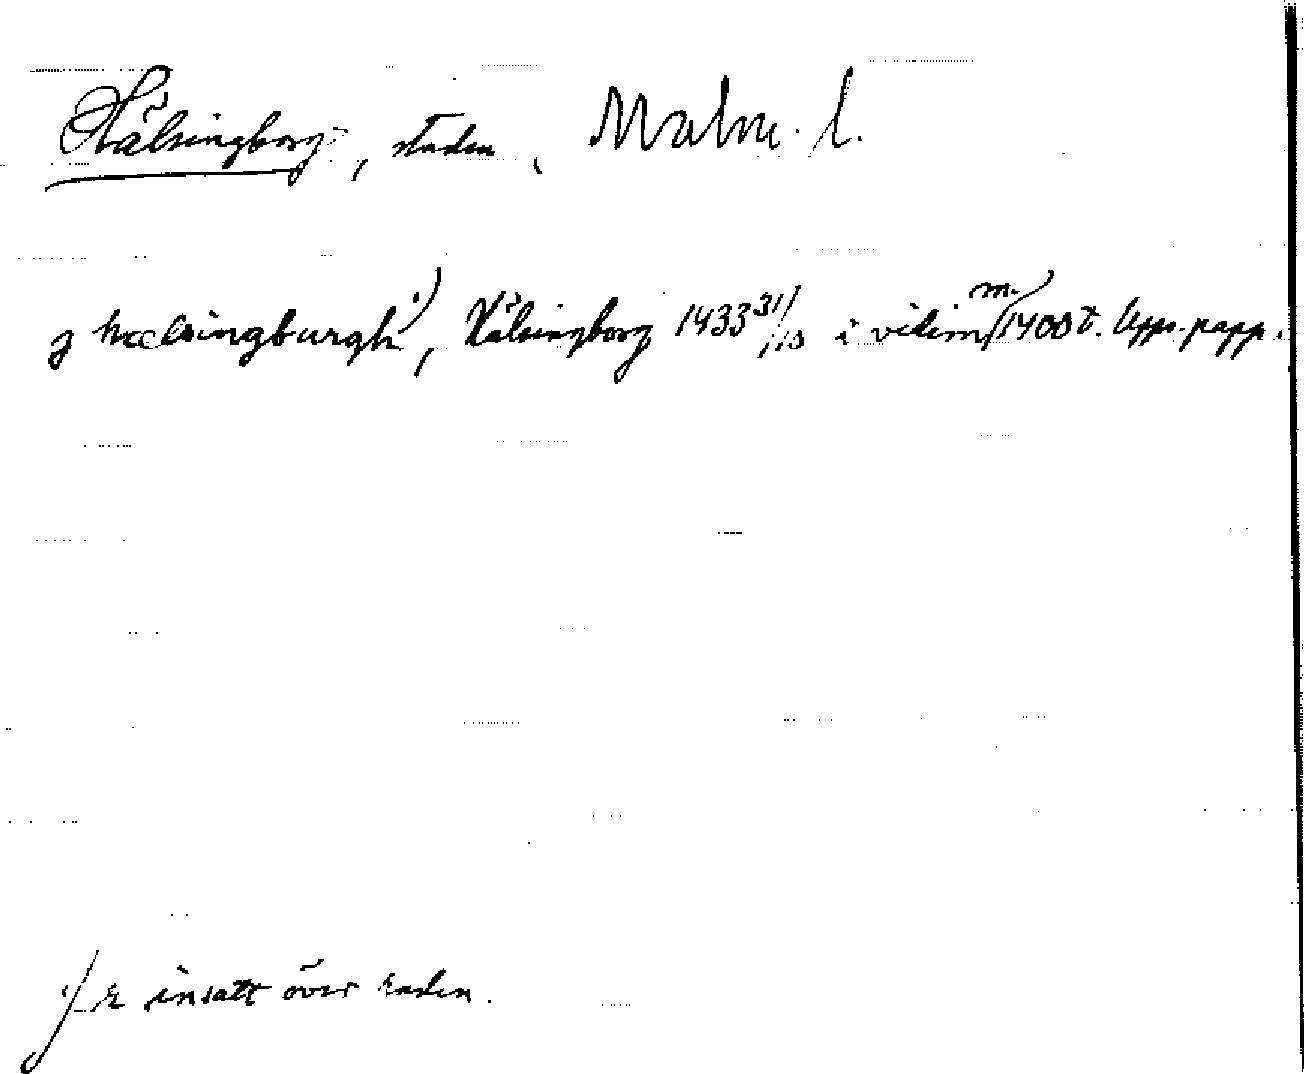 Hälsingborg, staden, Malm. l.
j hælsingburgh ¹), Hälsingborg 1433 31/10 i vidim m. 1400 t. Upps. papp.
¹) r insatt över raden.